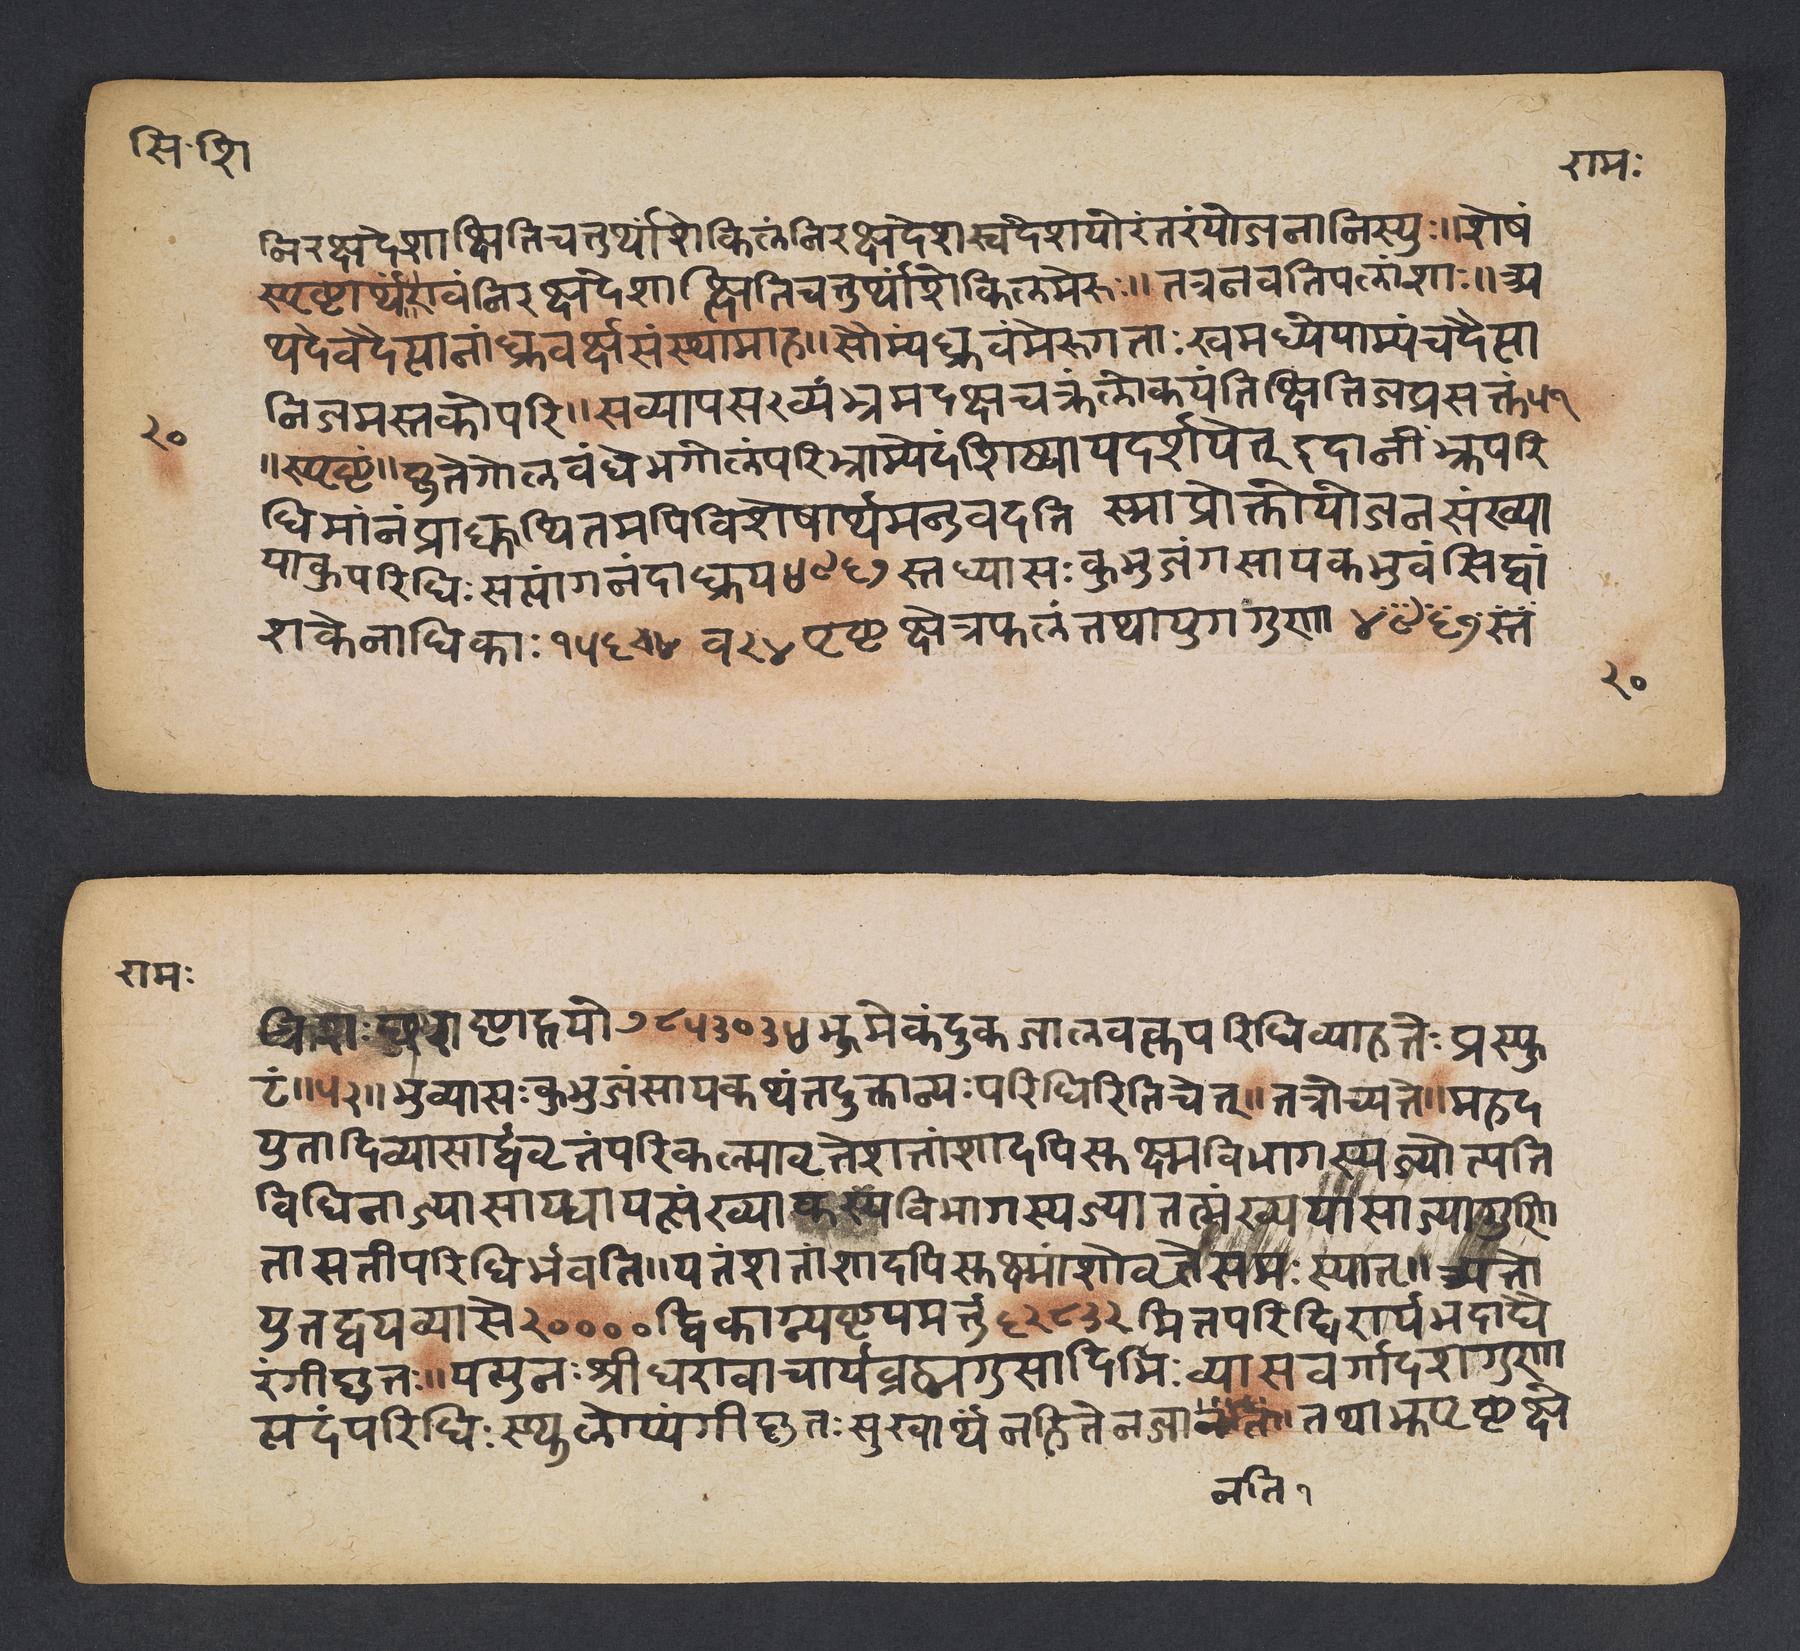 सि॰ शि
रामः
निरक्षदेशाक्षितिचतुर्थांशेकिलंनिरक्षदेशस्वदेशयोरंतरंयोजनानिस्युः॥शेषं
स्पष्टार्थं॥एवंनिरक्षदेशाक्षितिचतुर्थांशेकिलमेरूः॥तत्रनवतिपलांशाः॥अ
थदेवदैत्यानांध्रुवर्क्षसंस्थामाह॥सौम्यंध्रुवंमेरूगताःखमध्येयाम्यंचदैत्या
निजमस्तकोपरि॥सव्यापसव्यंभ्रमदक्षचक्रंलोकयंतिक्षितिजप्रसक्तं५१
२०
॥स्पष्टं॥द्युतेगोलबंधेभगोलंपरिभ्राम्येदंशिष्यायदर्शयेत् इदानीं भूपरि
धिमांनंप्राग्कथितमपिविशेषार्थमनुवदति स्माप्रोक्तोयोजनसंख्या
याकुपरिधिःसप्तांगनंदाब्धय४९६७स्तद्व्यासःकुभुजंगसायकभुवंसिद्धां
शकेनाधिकाः१५८१ व२४ पृष्टक्षेत्रफलंतथायुगगुणा ४९६७स्तं
२०
रामः
त्रिंशः छराष्टाद्रयो७८५३०३४भूमेकंदुकजालवत्कपरिधिव्याहतेःप्रस्फु
टं॥५२॥भुव्यासःकुभुजंसायकथंतदुक्तान्यःपरिधिरितिचेत्॥तत्रोच्यते॥महद
युतादिव्यासार्द्धंवृत्तंपरिकल्प्यवृत्तेशतांशादपिसूक्ष्मविभागस्यज्योत्पत्ति
विधिनाज्यासाध्यायत्संख्याकस्यविभागस्यज्यातत्संख्ययासाज्यागुणि
तासतीपरिधिर्भवति॥यतंशतांशादपिसूक्ष्मांशोवृत्तेसमःस्यात्॥अतो
युतद्वयव्यासे२००००द्विकाग्न्यष्टयमर्त्तु६२८३२मितपरिधिरार्यभटाद्यै
रंगीकृतः॥यत्पुनःश्रीधराचार्यब्रह्मगुप्तादिभिःव्यासवर्गादशगुणा
त्पदंपरिधिःस्थूलोप्यंगीकृतःसुखार्थंनहितेनजानंति॥तथाभूपृष्टक्षे
नति १